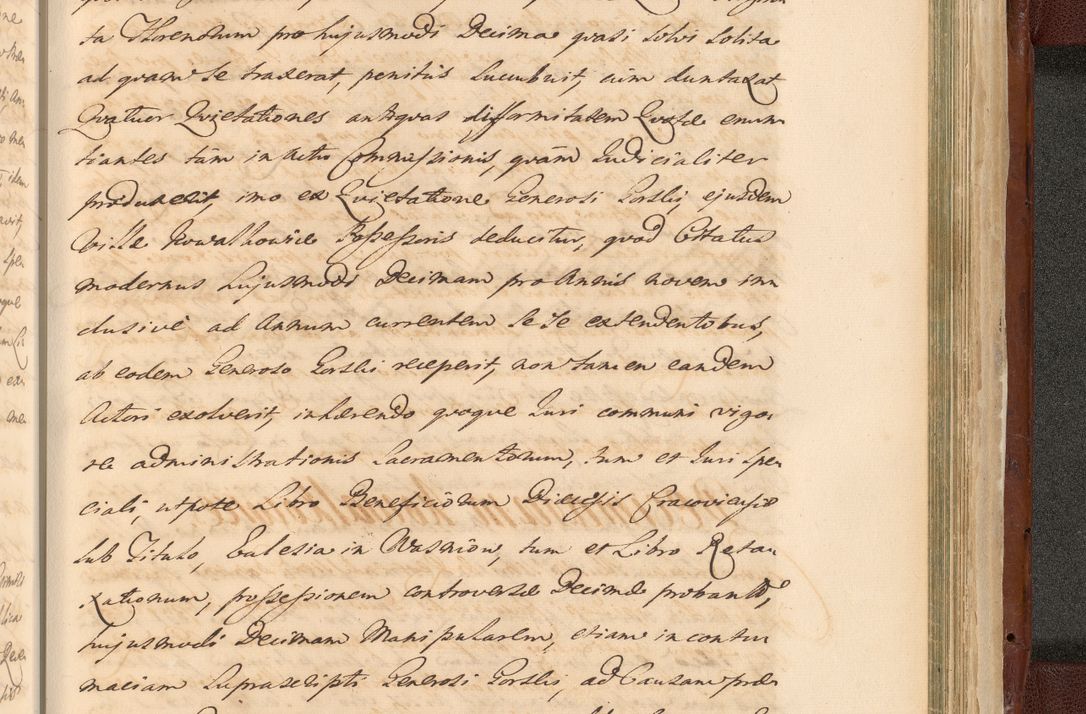 ta Florenorum pro hujusmodi Decima quasi solvi solita
ad quam se traxerat, penitus sucubuit, cum duntaxat
Quatuor Quietationes antiquas difformitatem Quotae enun
tiantes tam in Actu Commissionis, quam Judicialiter
produxerit, imo ex Quietatione Generosi Gorski, ejusdem
Villae Kowalkowice Possessoris deducitur, quod Citatus
modernus hujusmodi Decimam pro Annis novem in
clusive ad Annum currentem se se extendentibus,
ab eodem Generoso Gorski receperit, non tamen eandem
Actori exolverit, inhaerendo quoque Juri communi vigo
re administrationis Sacramentorum, tum et Juri spe
ciali, utpote Libro Beneficiorum Diaecesis Cracoviensis
sub Titulo, Ecclesia in Wasniow, tum et Libro Reta
xationum, possessionem controversae Decimae probanti,
hujusmodi Decimam Manipularem, etiam in contu
maciam suprascripti Generosi Gorski, ad Causam prae